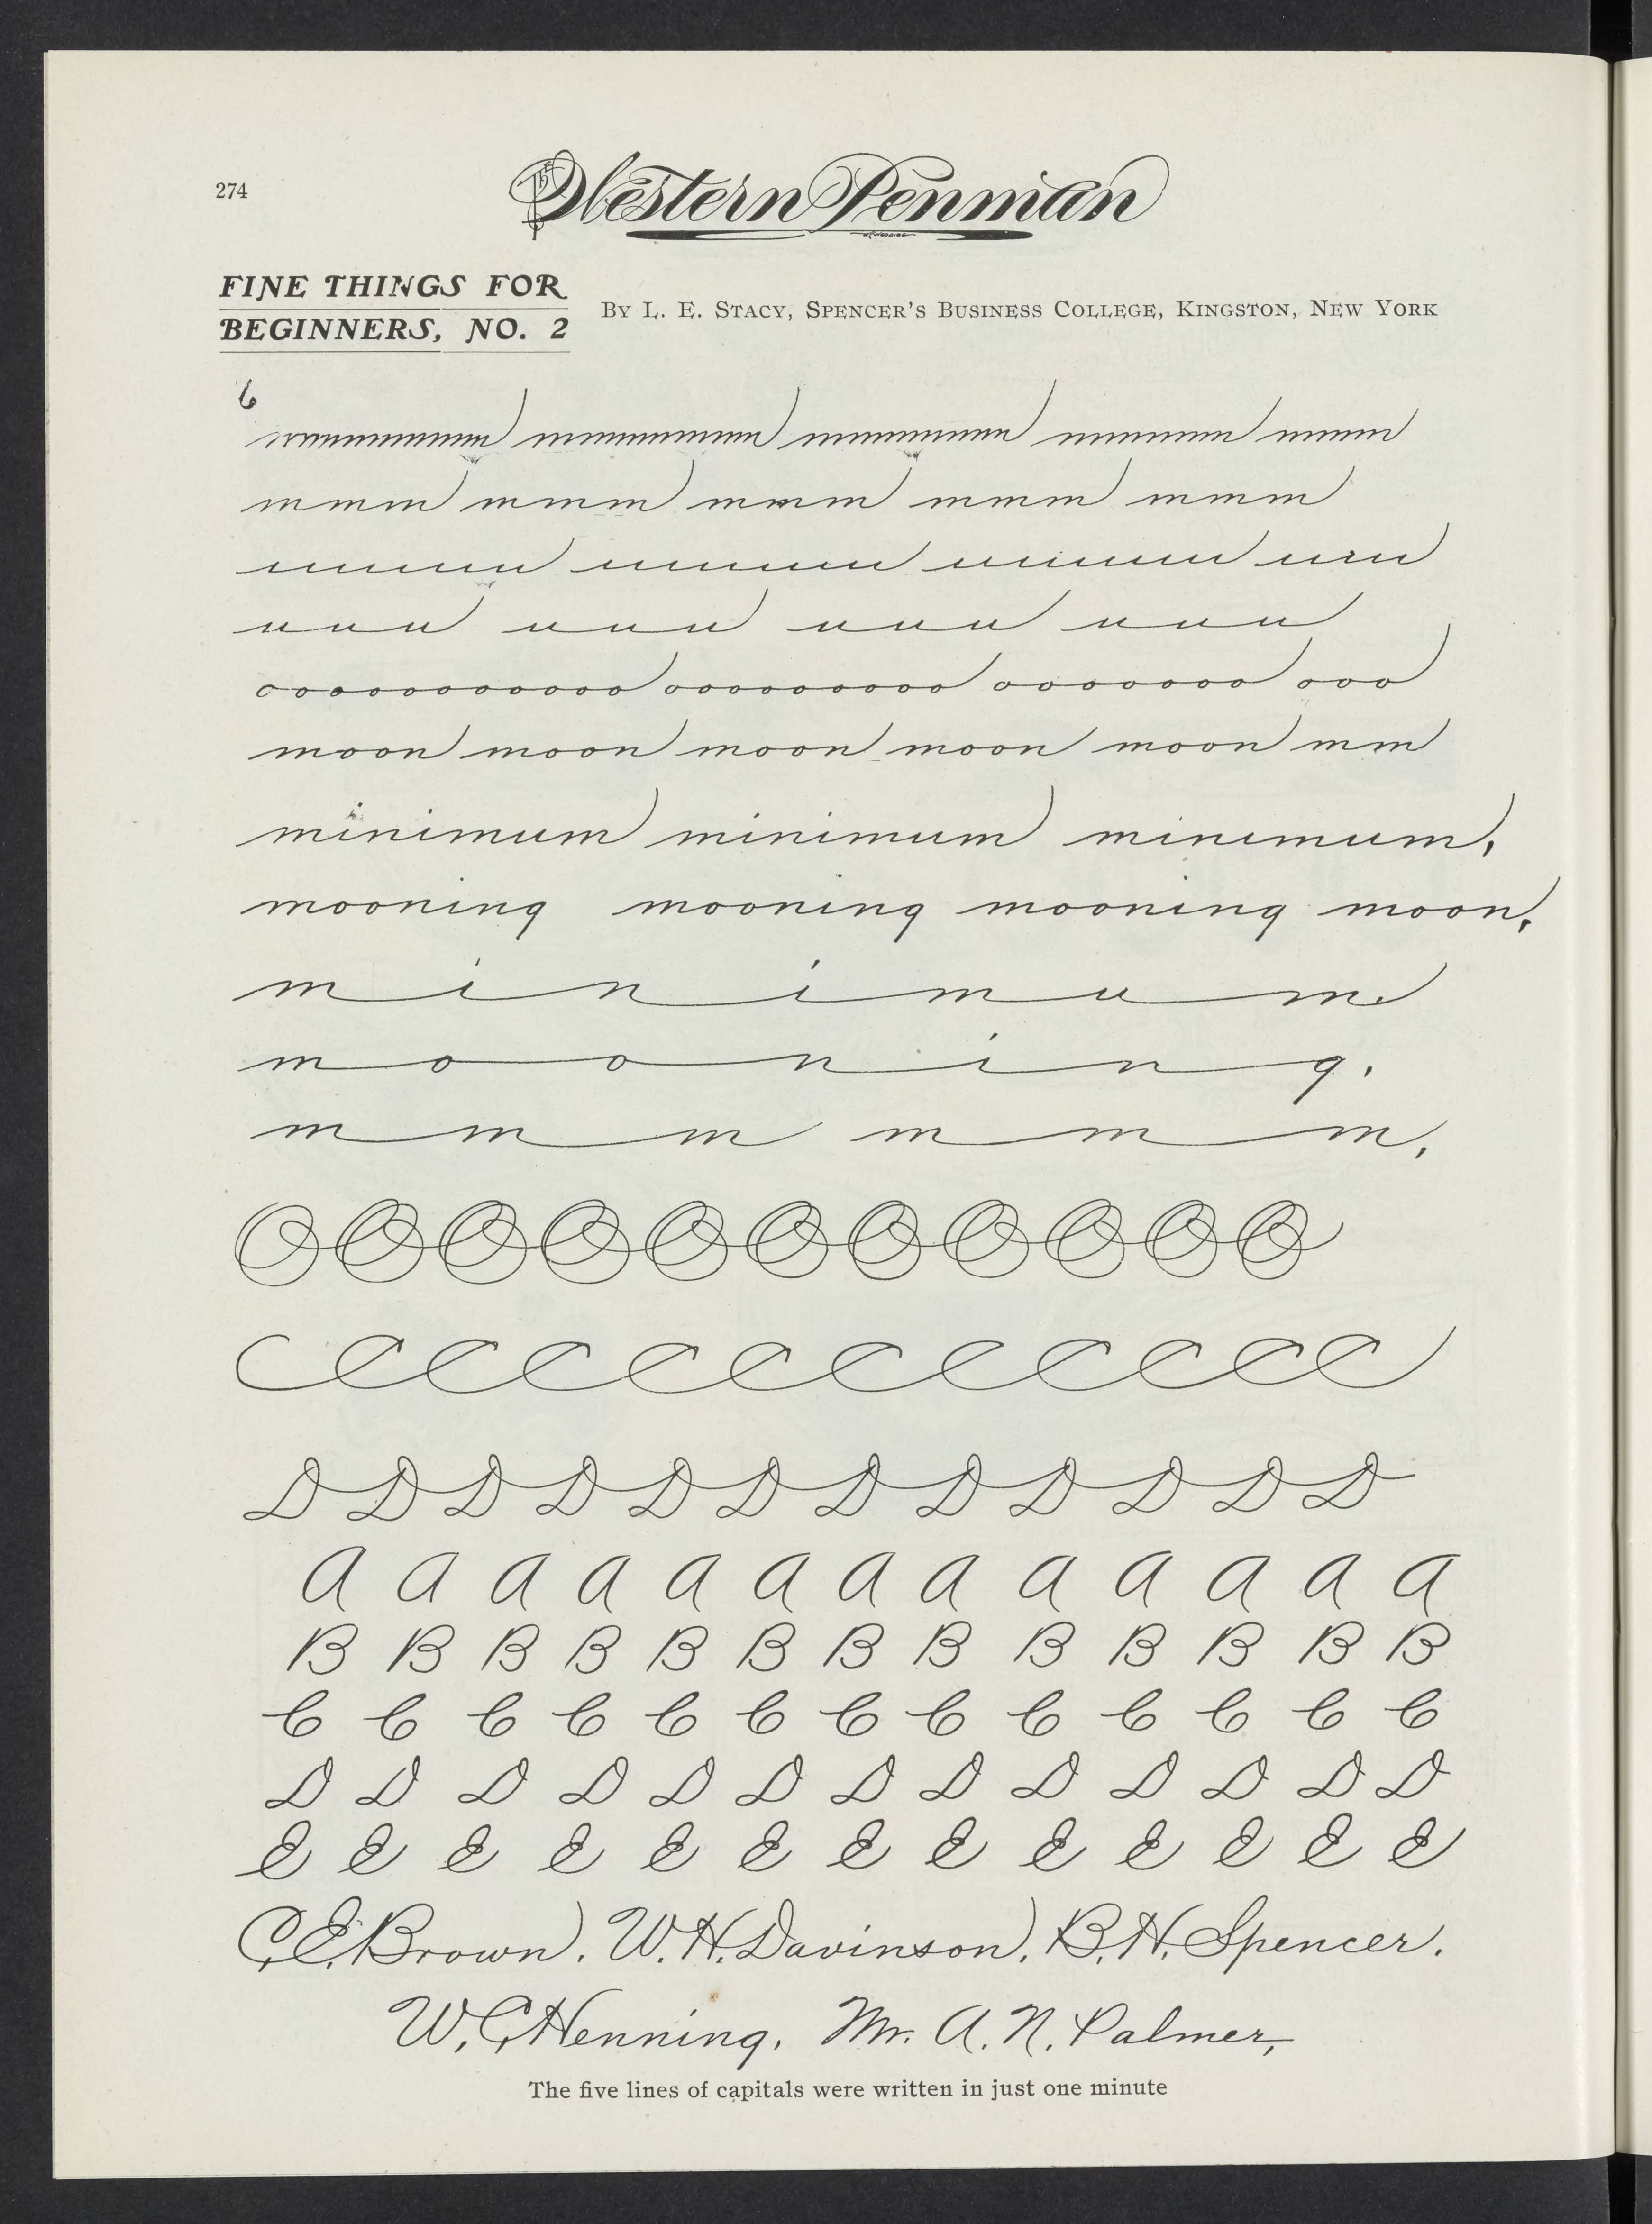 274
The Western Penman
FINE THINGS FOR
BEGINNERS, NO. 2
BY L. E. STACY, SPENCER'S BUSINESS COLLEGE, KINGSTON, NEW YORK
6
mmm mmm mmm mmm mmm
u u u u u u u u u u u u
ooooooooooo ooooooooo ooooooo ooo
moon moon moon moon moon mm
minimum minimum minimum,
mooning mooning mooning moon,
minimum.
mooning.
mmm mmm,
O O O O O O O O O O O
C C C C C C C C C C C C
D D D D D D D D D D D D
A A A A A A A A A A A A A
B B B B B B B B B B B B B
C C C C C C C C C C C C C
D D D D D D D D D D D D D
E E E E E E E E E E E E E
C. E. Brown. W. H. Davinson. B. H. Spencer.
W. C. Henning. Mr. A. N. Palmer,
The five lines of capitals were written in just one minute